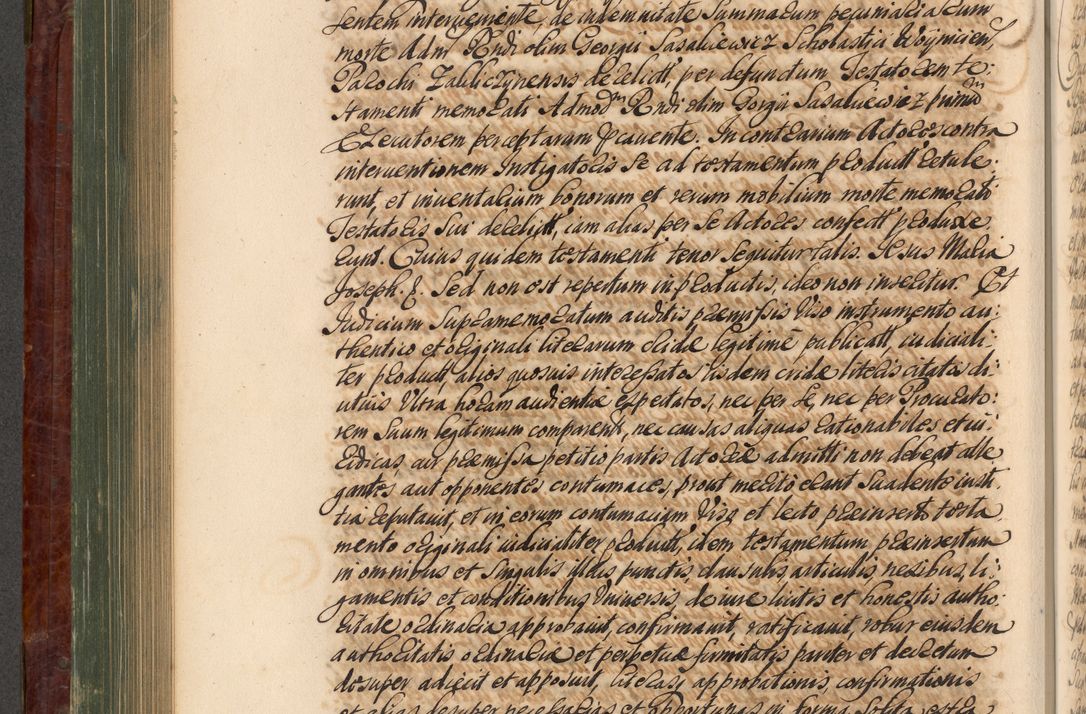 sentem interveniente, de indemnitate Summarum pecuniariarum
morte Adm Rndi olim Georgii Sasakiewicz Scholastici Woynicien,
Parochi Zakliczynensis derelict, per defunctum Testatorem te:
stamenti memorati Admodm Rndi olim Gorgii Sasakiewicz primu
Execatorem perceptarum Pcavente. In contrarium Actores contra
interventionem Instigatoris se ad testamentum product retule:
runt, et inventarium bonorum et rerum mobilium morte memorati
Testatoris sui derelict, iam alias per se Actores confect produxe.
runt. Cuius quidem testamenti tenor sequitur talis. Jesus Maria
Joseph. E. Sed non est repertum in productis, ideo non inseritur. Et
Judicium Supramemoratum auditis praemissis viso instrumento au:
thentico et originali literarum cridae legitime publicatt, iudiciali:
ter product, alios quosvis interessatos iisdem cridae literis citatos di:
utius ultra horam audientiae expectatos, nec per se, nec per Procurato:
rem suum legitimum comparent, nec causas aliquas rationabiles et iu:
ridicas, cur praemissa petitio partis Actoreae admitti non debeat alle
gantes aut opponentes contumaces, prout merito erant Suadente iusti:
tia reputavit, et in eorum contumaciam viso et lecto praeinserto testa.
mento originali iudicialiter product, idem testamentum praeinsertum
in omnibus et singulis illius punctis, clausulis, articulis nexibus, li:
gamentis et conditionibus universis, de iure licitis et honestis autho.
ritate ordinaria approbavit, confirmavit, ratificavit, robur eiusdem
authoritatis ordinariae et perpetuae firmitatis pariter et decretum
desuper adiecit et apposuit, literas, approbationis, confirmationis
et alias desuper necessarias et opportunas in forma solita